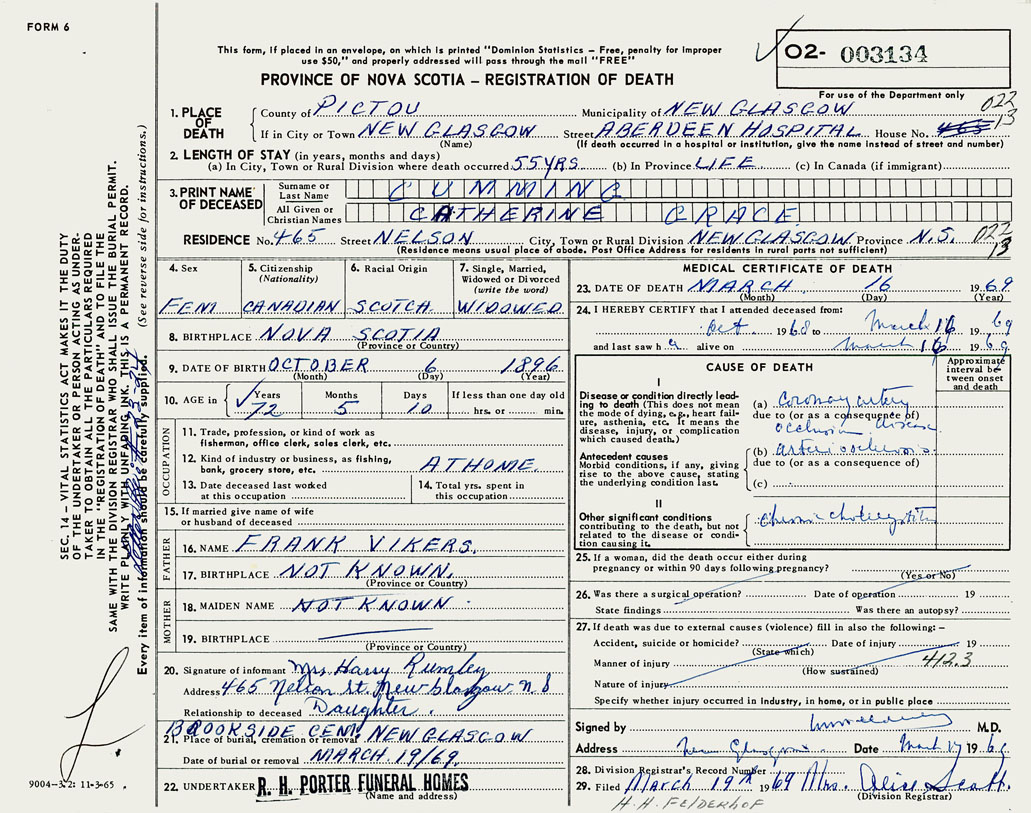 FORM 6
This form, if placed in an envelope, on which is printed "Dominion Statistics – Free, penalty for improper
use $50," and properly addressed will pass through the mail "FREE"
PROVINCE OF NOVA SCOTIA – REGISTRATION OF DEATH
02- 003134
For use of the Department only
022
13
1. PLACE OF DEATH
County of PICTOU Municipality of NEW GLASGOW
If in City or Town NEW GLASGOW Street ABERDEEN HOSPITAL House No. 465
(Name) (If death occurred in a hospital or institution, give the name instead of street and number)
2. LENGTH OF STAY (in years, months and days)
(a) In City, Town or Rural Division where death occurred 55 YRS. (b) In Province LIFE (c) In Canada (if immigrant)
3. PRINT NAME OF DECEASED
Surname or Last Name CUMMING
All Given or Christian Names CATHERINE GRACE
RESIDENCE No. 465 Street NELSON City, Town or Rural Division NEW GLASGOW Province N.S. 022
13
(Residence means usual place of abode. Post Office Address for residents in rural parts not sufficient)
4. Sex
FEM
5. Citizenship (Nationality)
CANADIAN
6. Racial Origin
SCOTCH
7. Single, Married, Widowed or Divorced (write the word)
WIDOWED
8. BIRTHPLACE NOVA SCOTIA
(Province or Country)
9. DATE OF BIRTH OCTOBER 6 1896
(Month) (Day) (Year)
10. AGE in
Years Months Days If less than one day old
72 5 10 hrs. or min.
OCCUPATION
11. Trade, profession, or kind of work as
fisherman, office clerk, sales clerk, etc.
12. Kind of industry or business, as fishing,
bank, grocery store, etc. AT HOME.
13. Date deceased last worked
at this occupation
14. Total yrs. spent in
this occupation
15. If married give name of wife
or husband of deceased
FATHER
16. NAME FRANK VIKERS.
17. BIRTHPLACE NOT KNOWN.
(Province or Country)
MOTHER
18. MAIDEN NAME NOT KNOWN
19. BIRTHPLACE
(Province or Country)
20. Signature of informant Mrs. Harry Rumley
Address 465 Nelson St. New Glasgow N.S
Relationship to deceased Daughter.
BROOKSIDE CEM. NEW GLASGOW
21. Place of burial, cremation or removal
Date of burial or removal MARCH 19/69.
22. UNDERTAKER R. H. PORTER FUNERAL HOMES
(Name and address)
MEDICAL CERTIFICATE OF DEATH
23. DATE OF DEATH MARCH 16 1969
(Month) (Day) (Year)
24. I HEREBY CERTIFY that I attended deceased from:
Oct 1968 to March 16 1969
and last saw h alive on March 16 1969
CAUSE OF DEATH
Approximate interval between onset and death
I
Disease or condition directly leading
to death (This does not mean
the mode of dying, e.g., heart failure,
asthenia, etc. It means the
disease, injury, or complication
which caused death.)
(a) Coronary artery
due to (or as a consequence of)
occlusion disease
Antecedent causes
Morbid conditions, if any, giving
rise to the above cause, stating
the underlying condition last.
(b) arteriosclerosis
due to (or as a consequence of)
(c)
II
Other significant conditions
contributing to the death, but not
related to the disease or condition
causing it.
Chronic cholecystitis
25. If a woman, did the death occur either during
pregnancy or within 90 days following pregnancy?
(Yes or No)
26. Was there a surgical operation? Date of operation 19
State findings Was there an autopsy?
27. If death was due to external causes (violence) fill in also the following: –
Accident, suicide or homicide? Date of injury 19
(State which)
Manner of injury 412.3
(How sustained)
Nature of injury
Specify whether injury occurred in Industry, in home, or in public place
Signed by M.D.
Address New Glasgow Date March 17 1969
28. Division Registrar's Record Number
29. Filed March 19th 1969 Mrs. Alice Scott.
(Division Registrar)
H.H. FELDERHOF
SEC. 14 – VITAL STATISTICS ACT MAKES IT THE DUTY
OF THE UNDERTAKER OR PERSON ACTING AS UNDER-
TAKER TO OBTAIN ALL THE PARTICULARS REQUIRED
IN THE "REGISTRATION OF DEATH" AND TO FILE THE
SAME WITH THE DIVISION REGISTRAR WHO SHALL ISSUE THE BURIAL PERMIT.
WRITE PLAINLY WITH UNFADING INK. THIS IS A PERMANENT RECORD.
Every item of information should be carefully supplied. (See reverse side for instructions.)
9004-3.2: 11-3-65